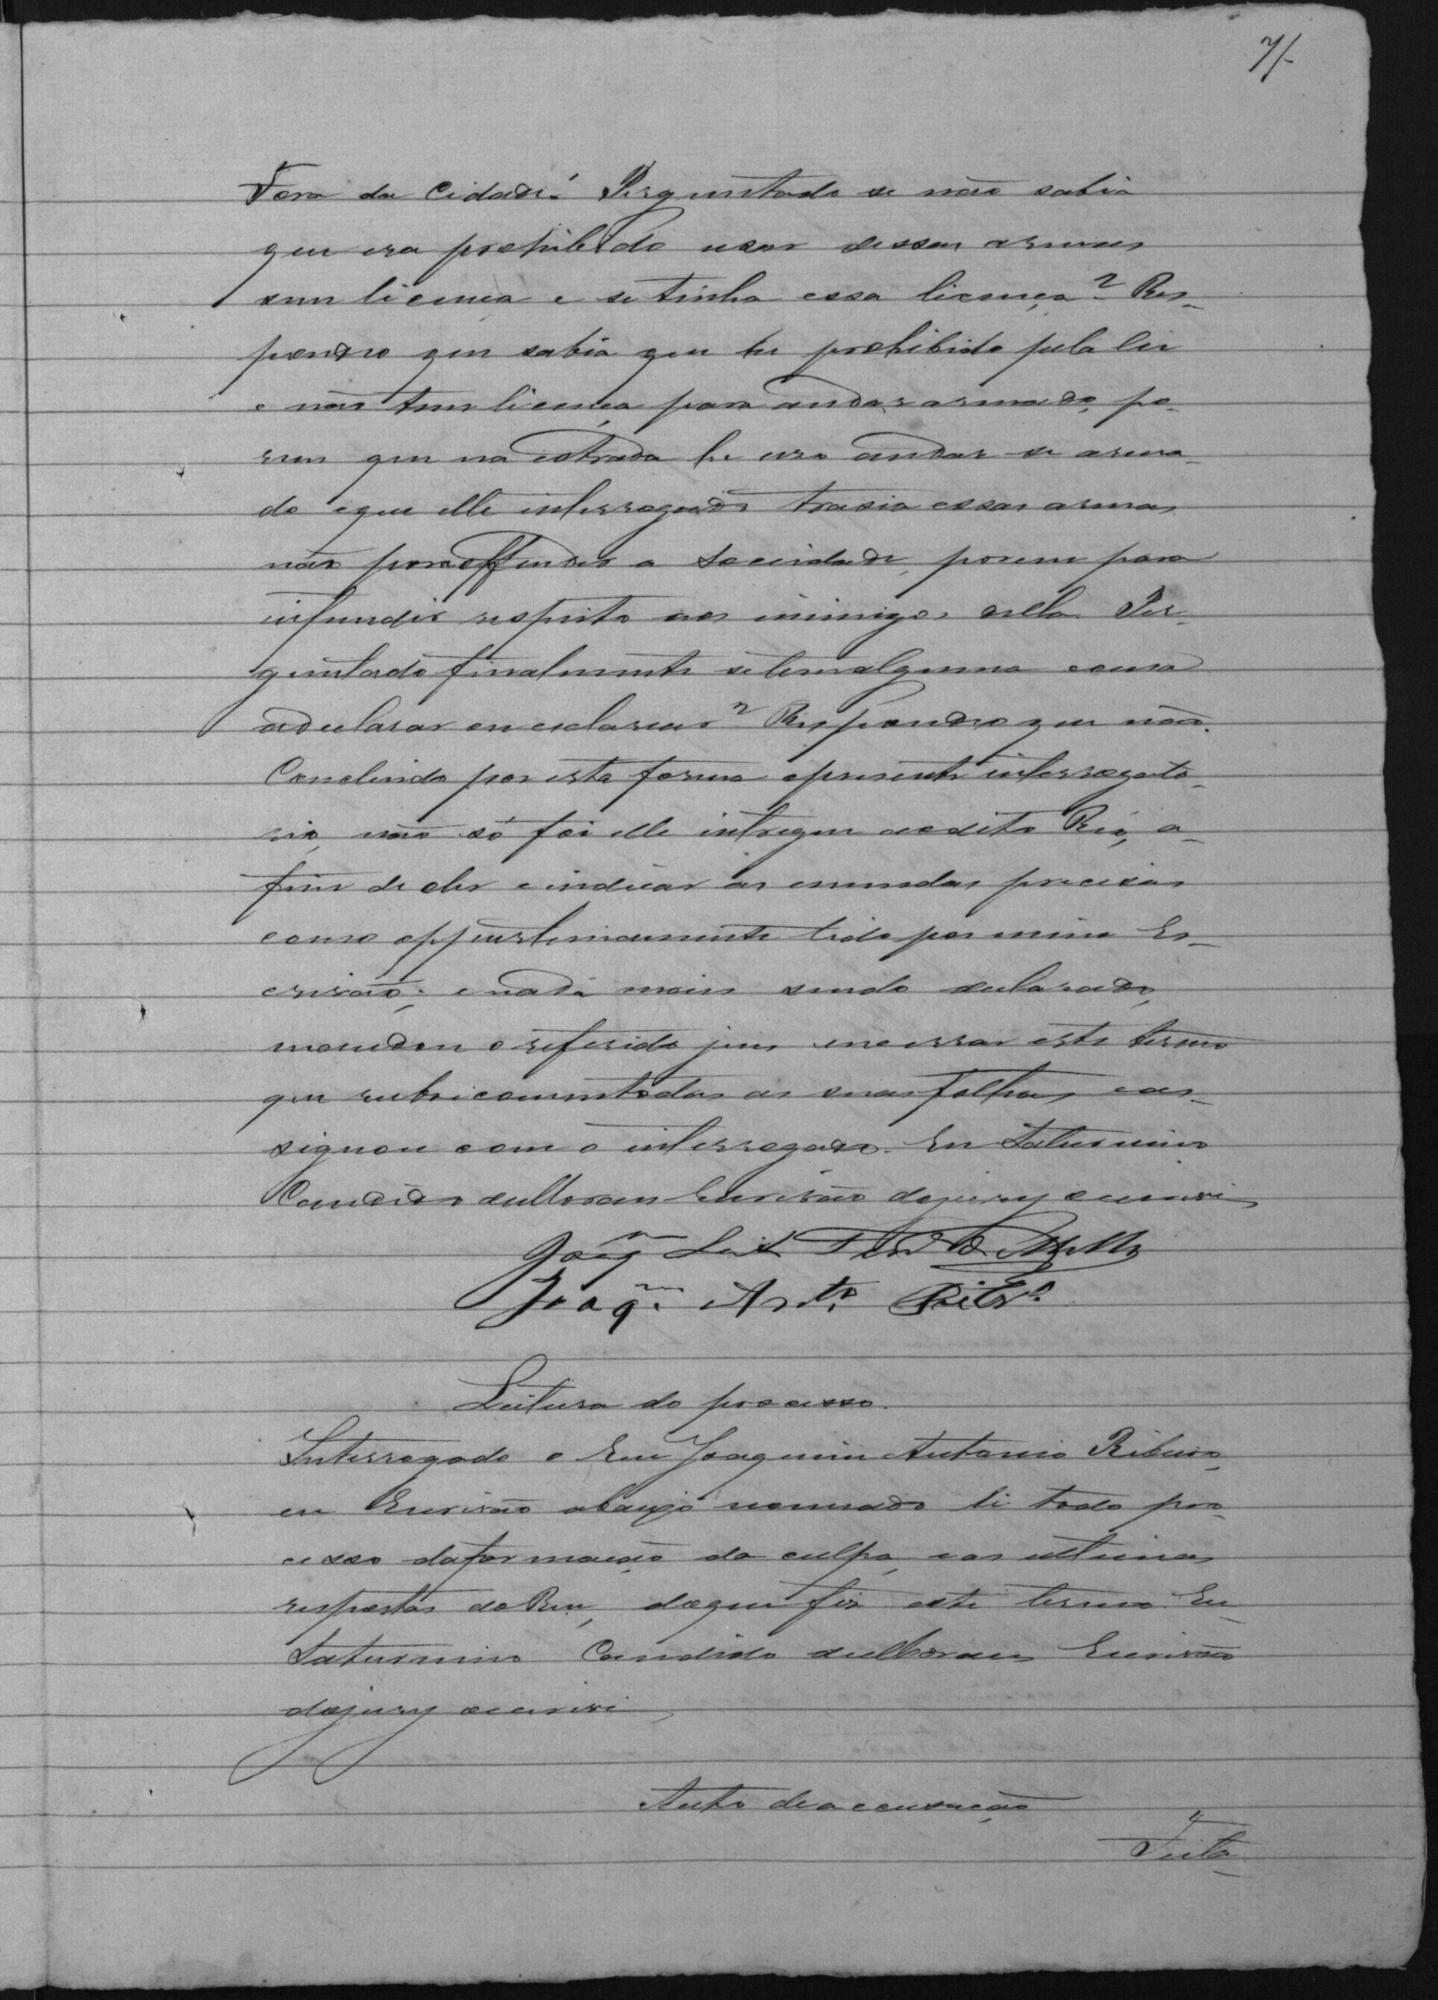 7/-
Fora da Cidade. Perguntado se não sabia
que era prohibido usar dessas armas
sem licença e se tinha essa licença? Res-
pondeo que sabia que he prohibido pela lei
e não tem licença para andar armado, po-
rem que na estrada he uso andar se arma-
do e que elle interrogado trasia essas armas
não para offender a Sociedade, porem para
infundir respeito aos inimigos della. Per-
guntado finalmente se tem alguma cousa
a declarar ou esclarecer? Respondeo que não.
Concluido por esta forma o presente interrogato-
rio, não só foi elle intregue ao dito Réo, a-
fim de ler e indicar as emendas precisas
como oppurtunamente lido por mim Es-
crivão; e nada mais sendo declarado,
mandou o referido juiz encerrar este termo
que rubricou em todas as suas folhas, e as-
signou com o interrogado. Eu Saturnino
Candido de Moraes Escrivão do jury o escrevi
Joaqm
Joaqm. Anto. Ribro.
Leitura do processo.
Interrogado o Reu Joaquim Antonio Ribeiro,
eu Escrivão abaixo nomeado li todo pro-
cesso da formação da culpa, e as ultimas
respostas do Reu, do que fiz este termo. Eu
Saturnino Candido de Moraes Escrivão
do jury o escrevi
Auto de accusação
Feita